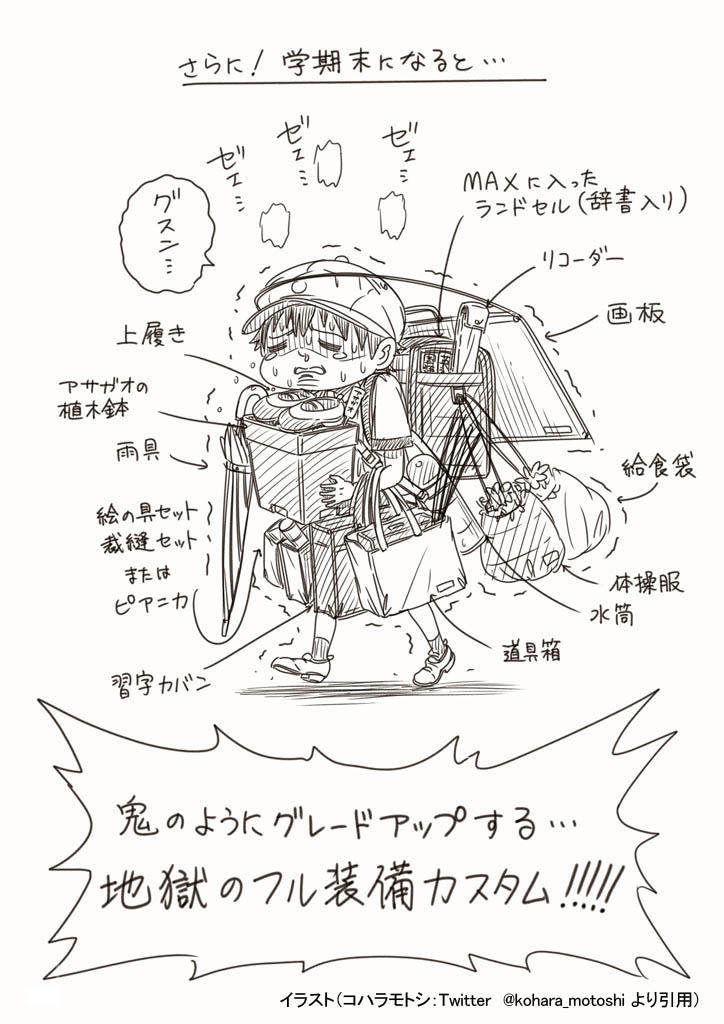 さらに！ 学期末になると…
ゼエ…
ゼエ…
ゼエ…
グスン…
MAXに入った
ランドセル（辞書入り）
リコーダー
画板
上履き
アサガオの
植木鉢
雨具
給食袋
絵の具セット
裁縫セット
または
ピアニカ
体操服
水筒
道具箱
習字カバン
鬼のようにグレードアップする…
地獄のフル装備カスタム!!!!!
イラスト（コハラモトシ：Twitter @kohara_motoshi より引用）